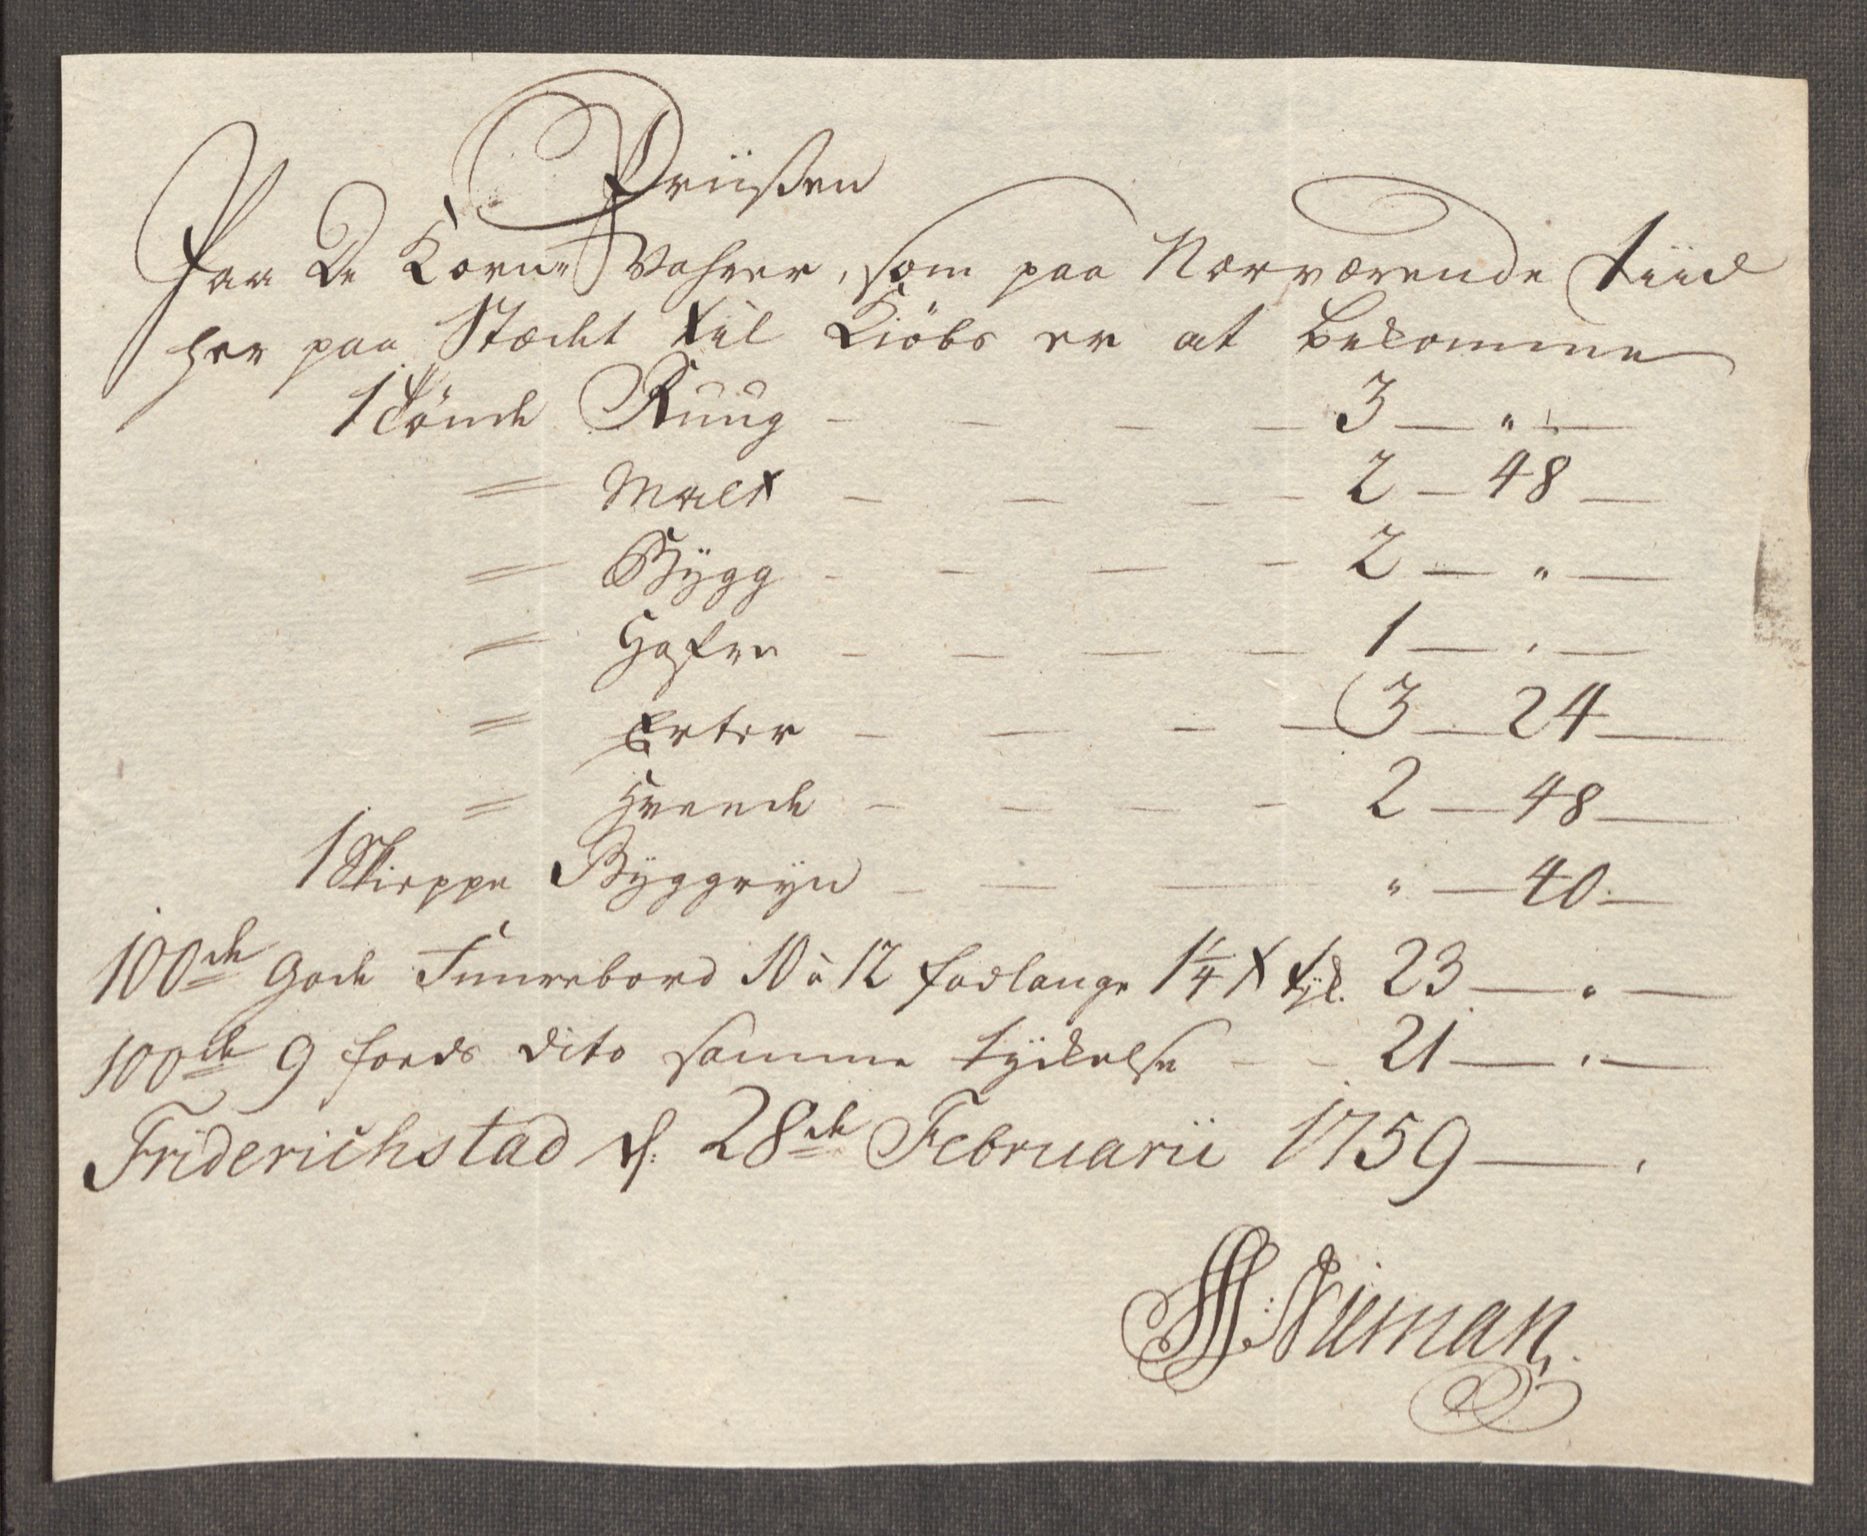 Priißen
Paa De Korn Vahrer, som paa Nærværende tiid
her paa Stædet til Kiöbs er at bekomme
1 Tönde Ruug — — — — 3 — " —
= Malt — — — — 2 — 48 —
= Bÿgg — — — — 2 — " —
= Hafre — — — — 1 — " —
= Erter — — — — 3 — 24 —
= Hveede — — — — 2 — 48 —
1 Skieppe Bÿggrÿn — — — " — 40 —
100de gode Furrebord 10 à 12 fodlange 1¼ t. tÿk. 23 — " —
100de 9 foeds dito samme tÿckelse — — 21 — " —
Friderichstad d: 28de Februarii 1759 —
Nieman